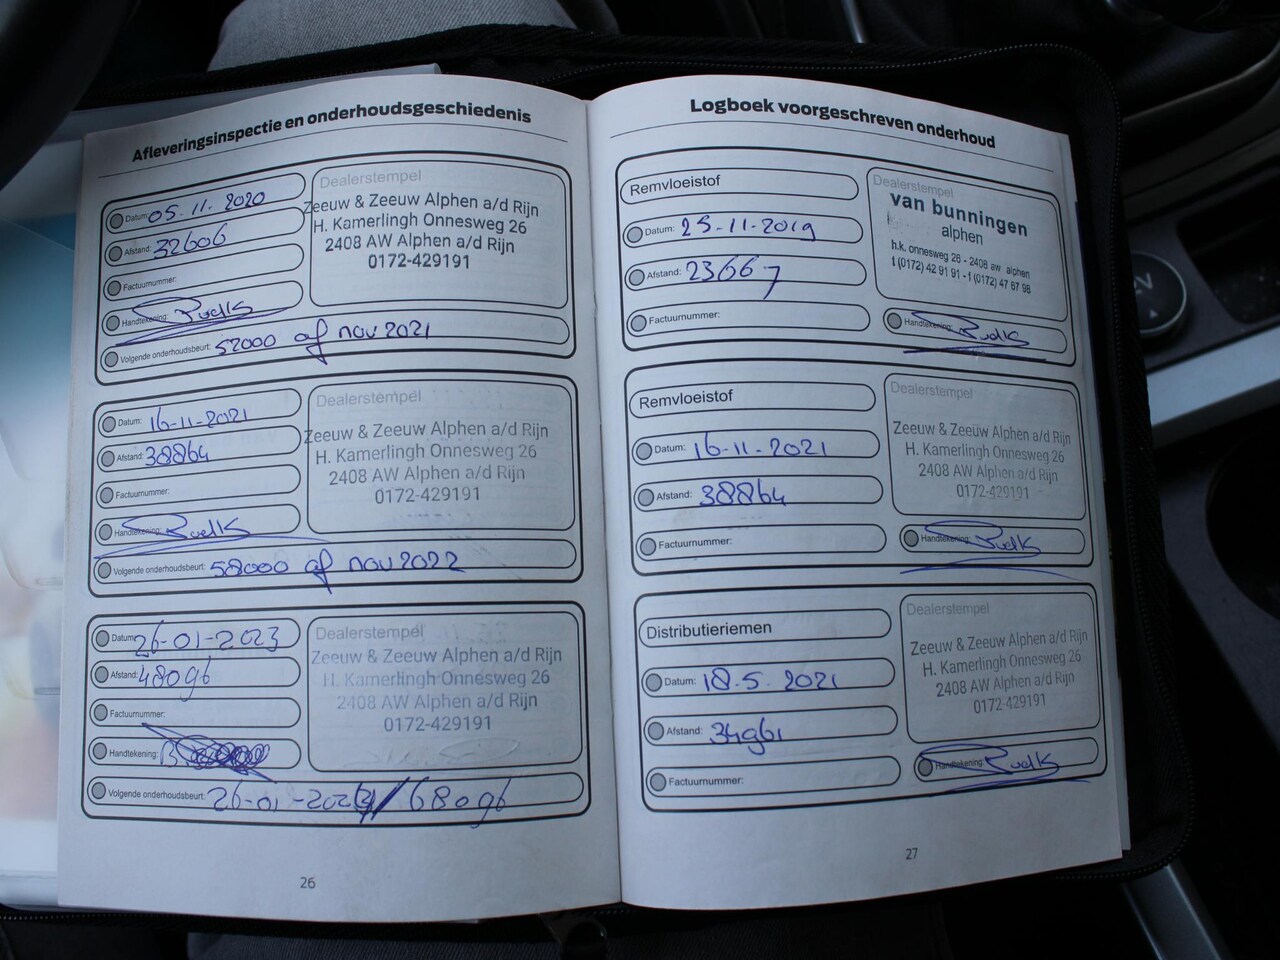 Afleveringsinspectie en onderhoudsgeschiedenis
Datum: 05-11-2020
Afstand: 32606
Factuurnummer:
Handtekening:
Volgende onderhoudsbeurt: 52000 of nov 2021
Dealerstempel
Zeeuw & Zeeuw Alphen a/d Rijn
H. Kamerlingh Onnesweg 26
2408 AW Alphen a/d Rijn
0172-429191
Datum: 16-11-2021
Afstand: 38864
Factuurnummer:
Handtekening:
Volgende onderhoudsbeurt: 58000 of nov 2022
Dealerstempel
Zeeuw & Zeeuw Alphen a/d Rijn
H. Kamerlingh Onnesweg 26
2408 AW Alphen a/d Rijn
0172-429191
Datum: 26-01-2023
Afstand: 48096
Factuurnummer:
Handtekening:
Volgende onderhoudsbeurt: 26-01-2024 / 68096
Dealerstempel
Zeeuw & Zeeuw Alphen a/d Rijn
H. Kamerlingh Onnesweg 26
2408 AW Alphen a/d Rijn
0172-429191
26
Logboek voorgeschreven onderhoud
Remvloeistof
Datum: 25-11-2019
Afstand: 23667
Factuurnummer:
Dealerstempel
van bunningen
alphen
h.k. onnesweg 26 - 2408 aw alphen
t (0172) 42 91 91 - f (0172) 47 67 98
Handtekening:
Remvloeistof
Datum: 16-11-2021
Afstand: 38864
Factuurnummer:
Dealerstempel
Zeeuw & Zeeuw Alphen a/d Rijn
H. Kamerlingh Onnesweg 26
2408 AW Alphen a/d Rijn
0172-429191
Handtekening:
Distributieriemen
Datum: 18-5-2021
Afstand: 34961
Factuurnummer:
Dealerstempel
Zeeuw & Zeeuw Alphen a/d Rijn
H. Kamerlingh Onnesweg 26
2408 AW Alphen a/d Rijn
0172-429191
Handtekening:
27